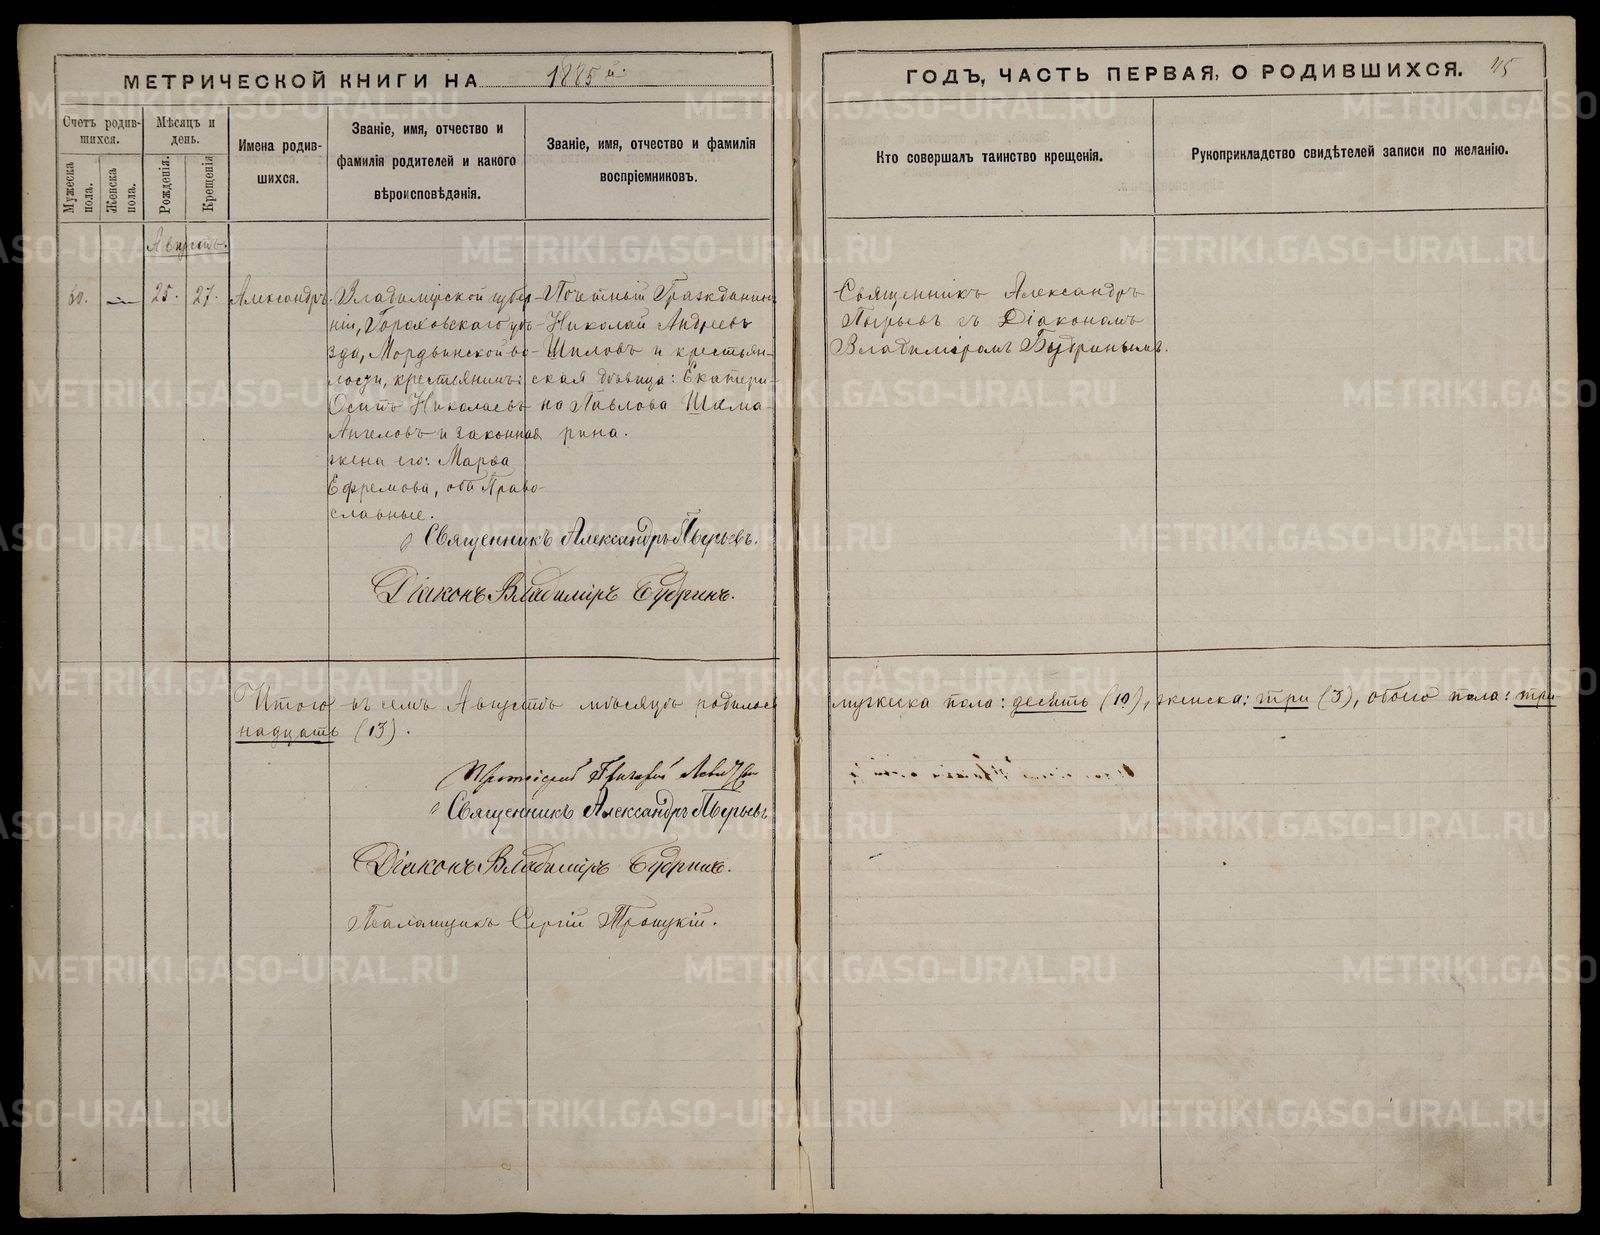 МЕТРИЧЕСКОЙ КНИГИ НА 1885й
ГОДЪ, ЧАСТЬ ПЕРВАЯ, О РОДИВШИХСЯ. 45
Счетъ родив-
шихся.
Мужеска пола.
Женска пола.
Мѣсяцъ и
день.
Рожденія.
Крещенія
Имена родив-
шихся.
Званіе, имя, отчество и
фамилія родителей и какого
вѣроисповѣданія.
Званіе, имя, отчество и фамилія
воспріемниковъ.
Кто совершалъ таинство крещенія.
Рукоприкладство свидѣтелей записи по желанію.
Августъ.
60.
25.
27.
Александръ.
Владимірской губер-
ніи, Гороховскаго уѣ-
зда, Мордвинской во-
лости, крестьянинъ:
Осипъ Николаевъ
Ангеловъ и законная
жена его: Марѳа
Ефремова, оба Право-
славные.
Почетный Гражданинъ
Николай Андреевъ
Шиловъ и крестьян-
ская дѣвица: Екатери-
на Павлова Шама-
рина.
Священникъ Александръ
Пырьевъ съ Діакономъ
Владиміромъ Будринымъ.
Священникъ Александръ Пырьевъ.
Діаконъ Владиміръ Будринъ.
Итого въ семъ Августѣ мѣсяцѣ родилось мужеска пола: десять (10), женска: три (3), обоего пола: три-
надцать (13).
Протоіерей Григорій
Священникъ Александръ Пырьевъ
Діаконъ Владиміръ Будринъ.
Псаломщикъ Сергій Троицкій.
METRIKI.GASO-URAL.RU